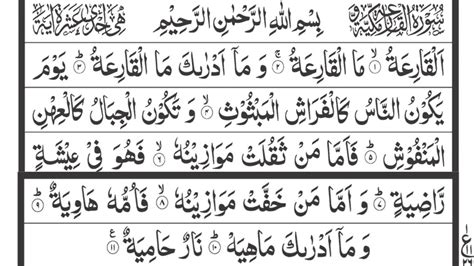 سُوْرَةُ الْقَارِعَةِ مَكِّيَّةٌ وَّ بِسْمِ اللّٰهِ الرَّحْمٰنِ الرَّحِيْمِ هِيَ اِحْدٰى عَشْرَةَ اٰيَةً
اَلْقَارِعَةُ ۙ﴿۱﴾ مَا الْقَارِعَةُ ۚ﴿۲﴾ وَ مَاۤ اَدْرٰىكَ مَا الْقَارِعَةُ ؕ﴿۳﴾ يَوْمَ
يَكُوْنُ النَّاسُ كَالْفَرَاشِ الْمَبْثُوْثِ ۙ﴿۴﴾ وَ تَكُوْنُ الْجِبَالُ كَالْعِهْنِ
الْمَنْفُوْشِ ؕ﴿۵﴾ فَاَمَّا مَنْ ثَقُلَتْ مَوَازِيْنُهٗ ۙ﴿۶﴾ فَهُوَ فِيْ عِيْشَةٍ
رَّاضِيَةٍ ؕ﴿۷﴾ وَ اَمَّا مَنْ خَفَّتْ مَوَازِيْنُهٗ ۙ﴿۸﴾ فَاُمُّهٗ هَاوِيَةٌ ؕ﴿۹﴾
وَ مَاۤ اَدْرٰىكَ مَاهِيَهْ ؕ﴿۱۰﴾ نَارٌ حَامِيَةٌ ﴿۱۱﴾